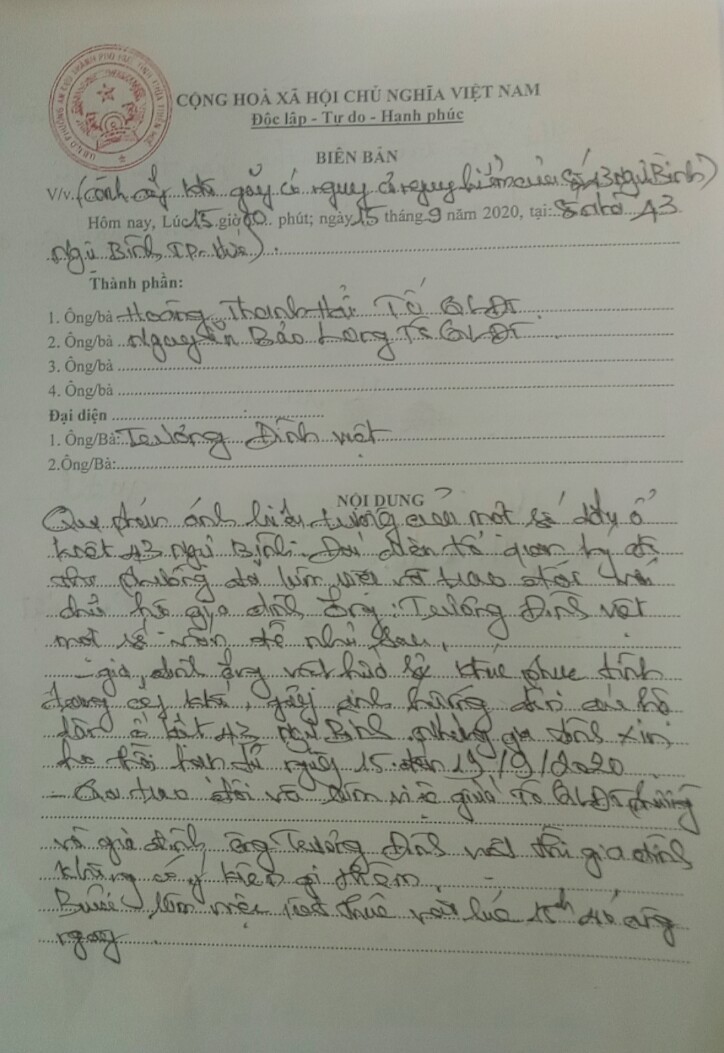 CỘNG HOÀ XÃ HỘI CHỦ NGHĨA VIỆT NAM
Độc lập - Tự do - Hạnh phúc
BIÊN BẢN
V/v (cành cây khô gãy có nguy cơ nguy hiểm của số 43 Ngự Bình)
Hôm nay, Lúc 15 giờ 00 phút; ngày 15 tháng 9 năm 2020, tại: Số nhà 43
Ngự Bình TP. Huế).
Thành phần:
1. Ông/bà Hoàng Thanh Hải Tổ QLĐT
2. Ông/bà Nguyễn Bảo Long Tổ QLĐT
3. Ông/bà
4. Ông/bà
Đại diện
1. Ông/Bà: Trương Đình Việt
2.Ông/Bà:
NỘI DUNG
Qua phản ánh hiện tượng của một số dây ở
kiệt 43 Ngự Bình. Đại diện tổ quản lý đô
thị phường đã làm việc và trao đổi với
chủ hộ gia đình Ông: Trương Đình Việt
một số vấn đề như sau,
- gia đình ông Việt hứa sẽ khắc phục tình
trạng cây khô, gãy ảnh hưởng đến các hộ
dân ở kiệt 43 Ngự Bình nhưng gia đình xin
thời hạn từ ngày 15 đến 19/9/2020
- Qua trao đổi và làm việc giữa Tổ QLĐT phường
và gia đình ông Trương Đình Việt thì gia đình
không có ý kiến gì thêm.
Buổi làm việc kết thúc vào lúc 15h cùng
ngày.